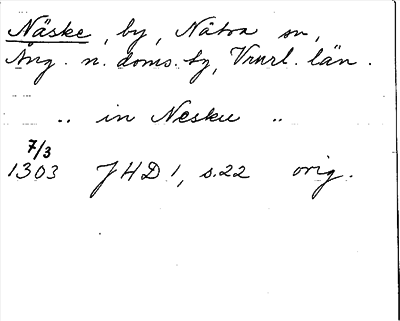 Näske, by, Nätra sn,
Ång. n. doms. by, Vnrl. län.
.. in Nesku ..
7/3
1303 JHD 1, s. 22 orig.